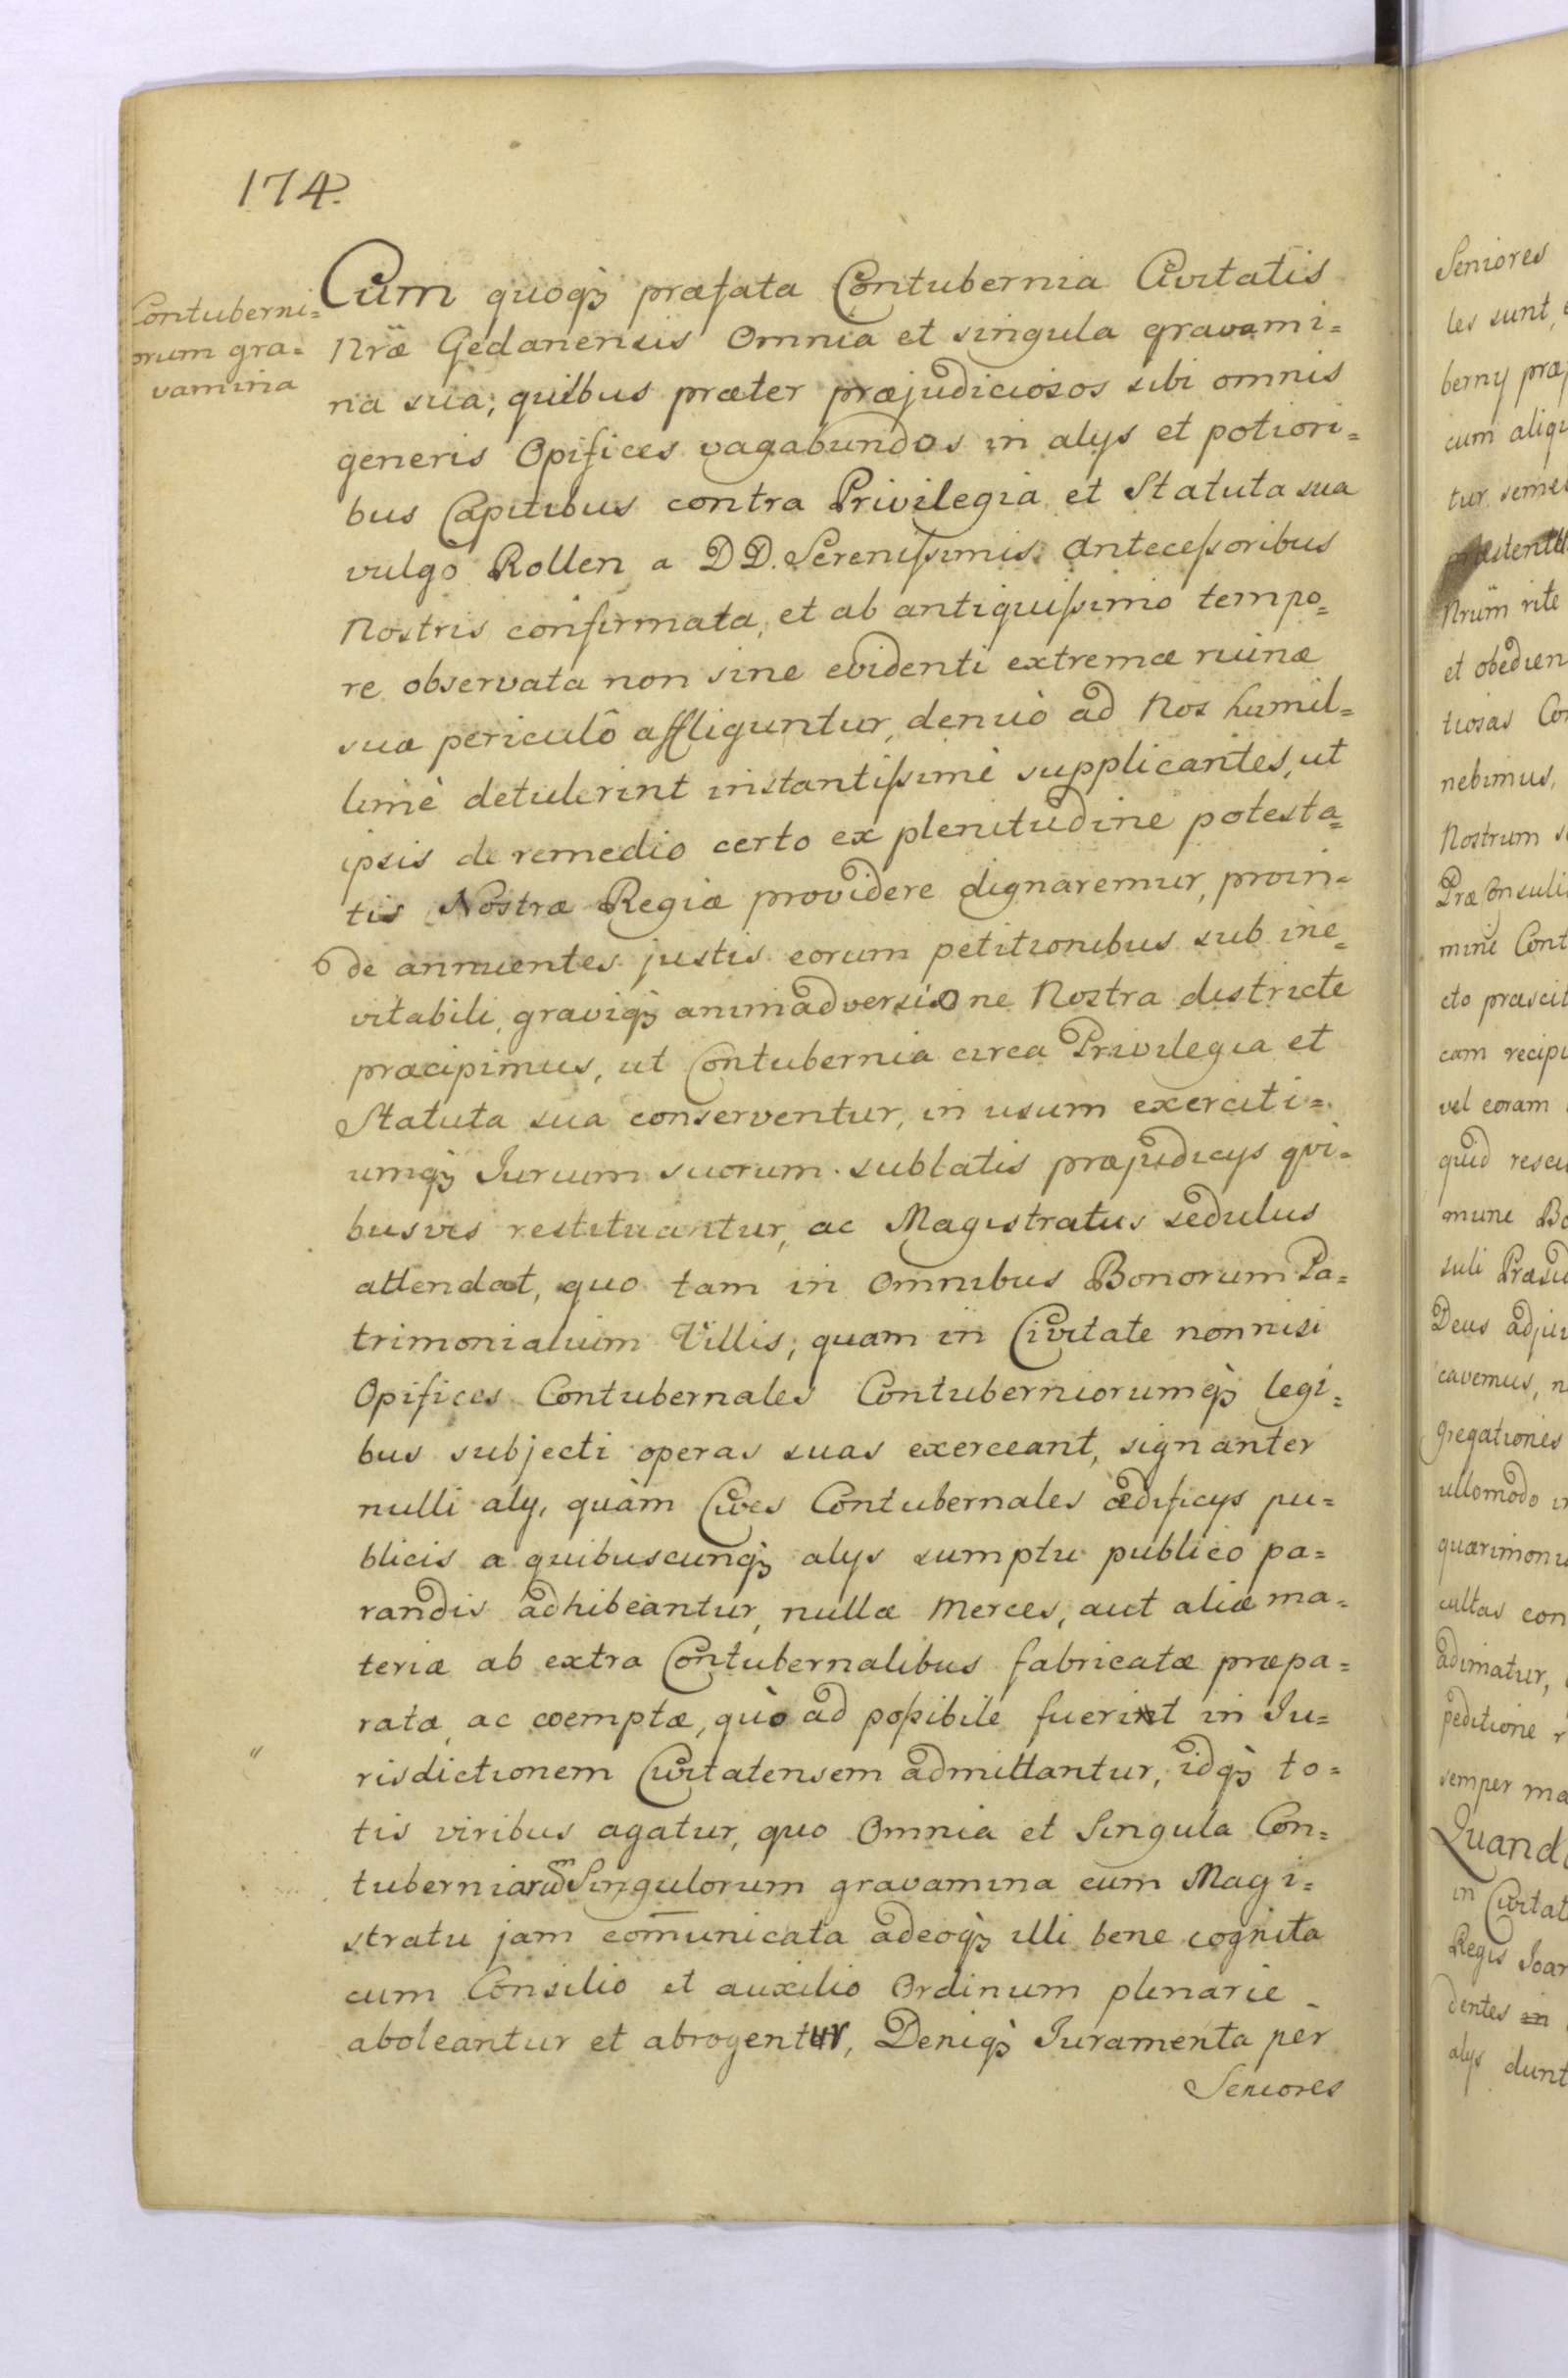 174.
Contuberni=
orum gra=
vamina
Cum quoq₃ præfata Contubernia Civitatis
Nræ Gedanensis Omnia et singula gravami=
na sua; quibus præter præjudiciosos sibi omnis
generis Opifices vagabundos in alys et potiori=
bus Capitibus contra Privilegia et Statuta sua
vulgo Rollen a DD. Serenissimis Antecessoribus
Nostris confirmata, et ab antiquissimo tempo=
re observata non sine evidenti extremæ ruinæ
suæ periculô affliguntur, denuò ad Nos humil=
limè detulerint instantissimè supplicantes, ut
ipsis de remedio certo ex plenitudine potesta=
tis Nostræ Regiæ providere dignaremur, proin=
de annuentes justis eorum petitionibus sub ine=
vitabili, graviq₃ animadversione Nostra districte
præcipimus, ut Contubernia circa Privilegia et
Statuta sua conserventur, in usum exerciti=
umq₃ Jurium suorum sublatis præjudicys qvi=
busvis restituantur, ac Magistratus sedulus
attendat, quo tam in Omnibus Bonorum Pa=
trimonialium Villis; quam in Civitate non nisi
Opifices Contubernales Contuberniorumq₃ legi=
bus subjecti operas suas exerceant, signanter
nulli aly, quàm Cives Contubernales ædificys pu=
blicis a quibuscunq₃ alys sumptu publico pa=
randis adhibeantur, nullæ Merces, aut aliæ ma=
teriæ ab extra Contubernalibus fabricatæ præpa=
ratæ ac coemptæ, quò ad possibile fuerint in Ju=
risdictionem Civitatensem admittantur, idq₃ to=
tis viribus agatur, quo Omnia et Singula Con=
tuberniorũ Singulorum gravamina cum Magi=
stratu jam com̄unicata adeoq₃ illi bene cognita
cum Consilio et auxilio Ordinum plenarie
aboleantur et abrogentur, Deniq₃ Juramenta per
Seniores
Seniores
les sunt,
berny præ
cum aliqu
tur semel
Nrüm rite
et obedien
tiosas Con
nebimus,
Nostrum
PræConsuli
mine Cont
cto præscit
cam recipi
vel coram
quid resci
mune Bo
suli Præsi
Deus adjuv
cavemus, n
gregationes
ullomodo in
quærimoni
cultas con
adimatur,
peditione r
semper ma
Quando
in Civitat
Regis Joan
dentes in
alys dunt